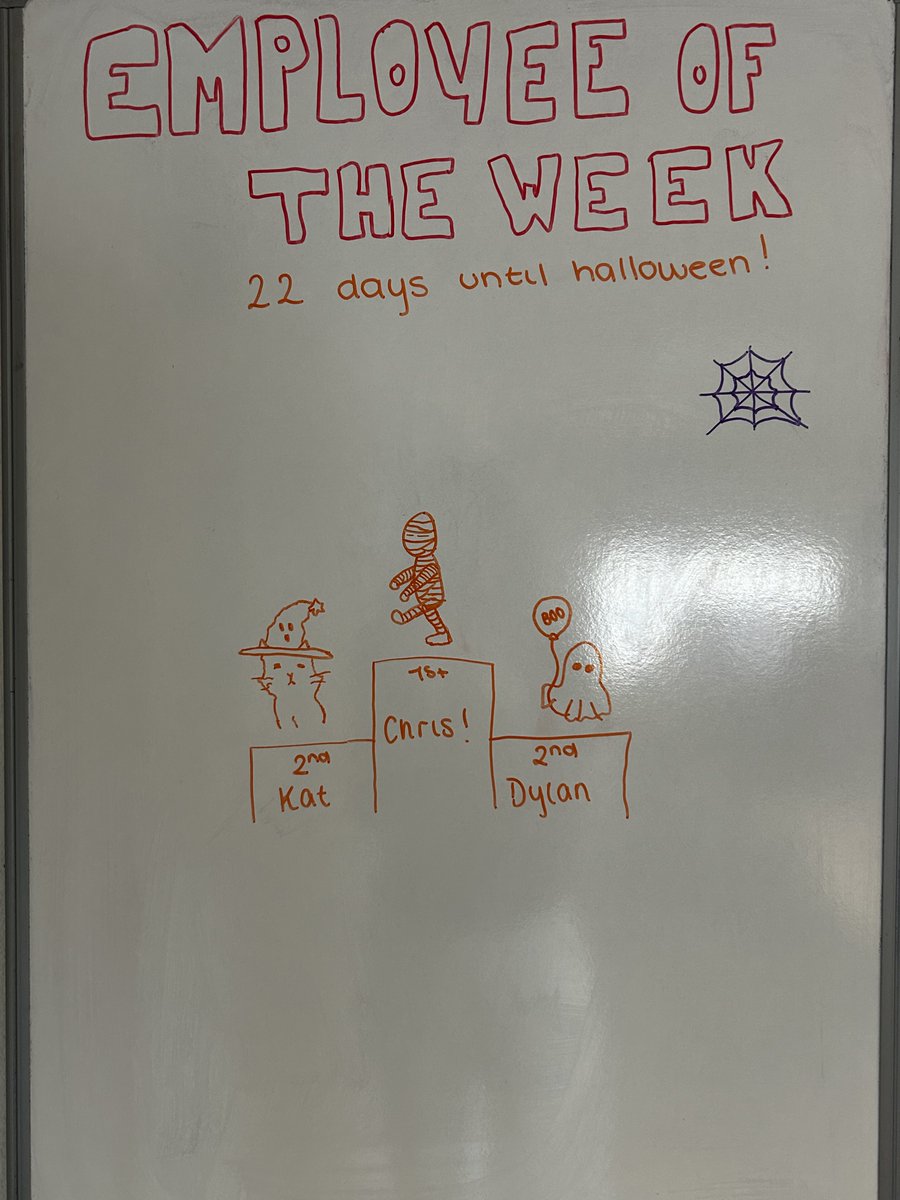 EMPLOYEE OF
THE WEEK
22 days until halloween!
BOO
1st
Chris!
2nd
2nd
Kat
Dylan